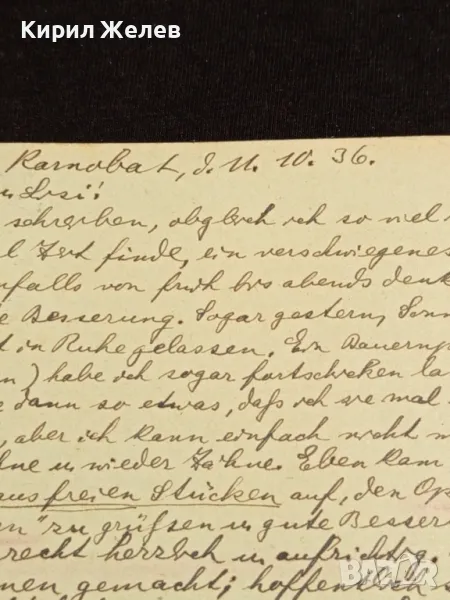 Кирил Желев
Karnobat, d. 11. 10. 36.
Lisi!
schreiben, obgleich ich so viel
l Zeit finde, ein verschwiegenes
nfalls von früh bis abends denk
e Besserung. Sogar gestern, Sonn
t in Ruhe gelassen. Ein Bauern
n) habe ich sogar fortschicken la
e dann so etwas, daß ich sie mal
, aber ich kann einfach nicht m
hne u wieder Zähne. Eben kam
aus freien Stücken auf, den Op
en" zu grüßen u gute Besser
recht herzlich u aufrichtig.
men gemacht; hoffentlich
Bazar.bg